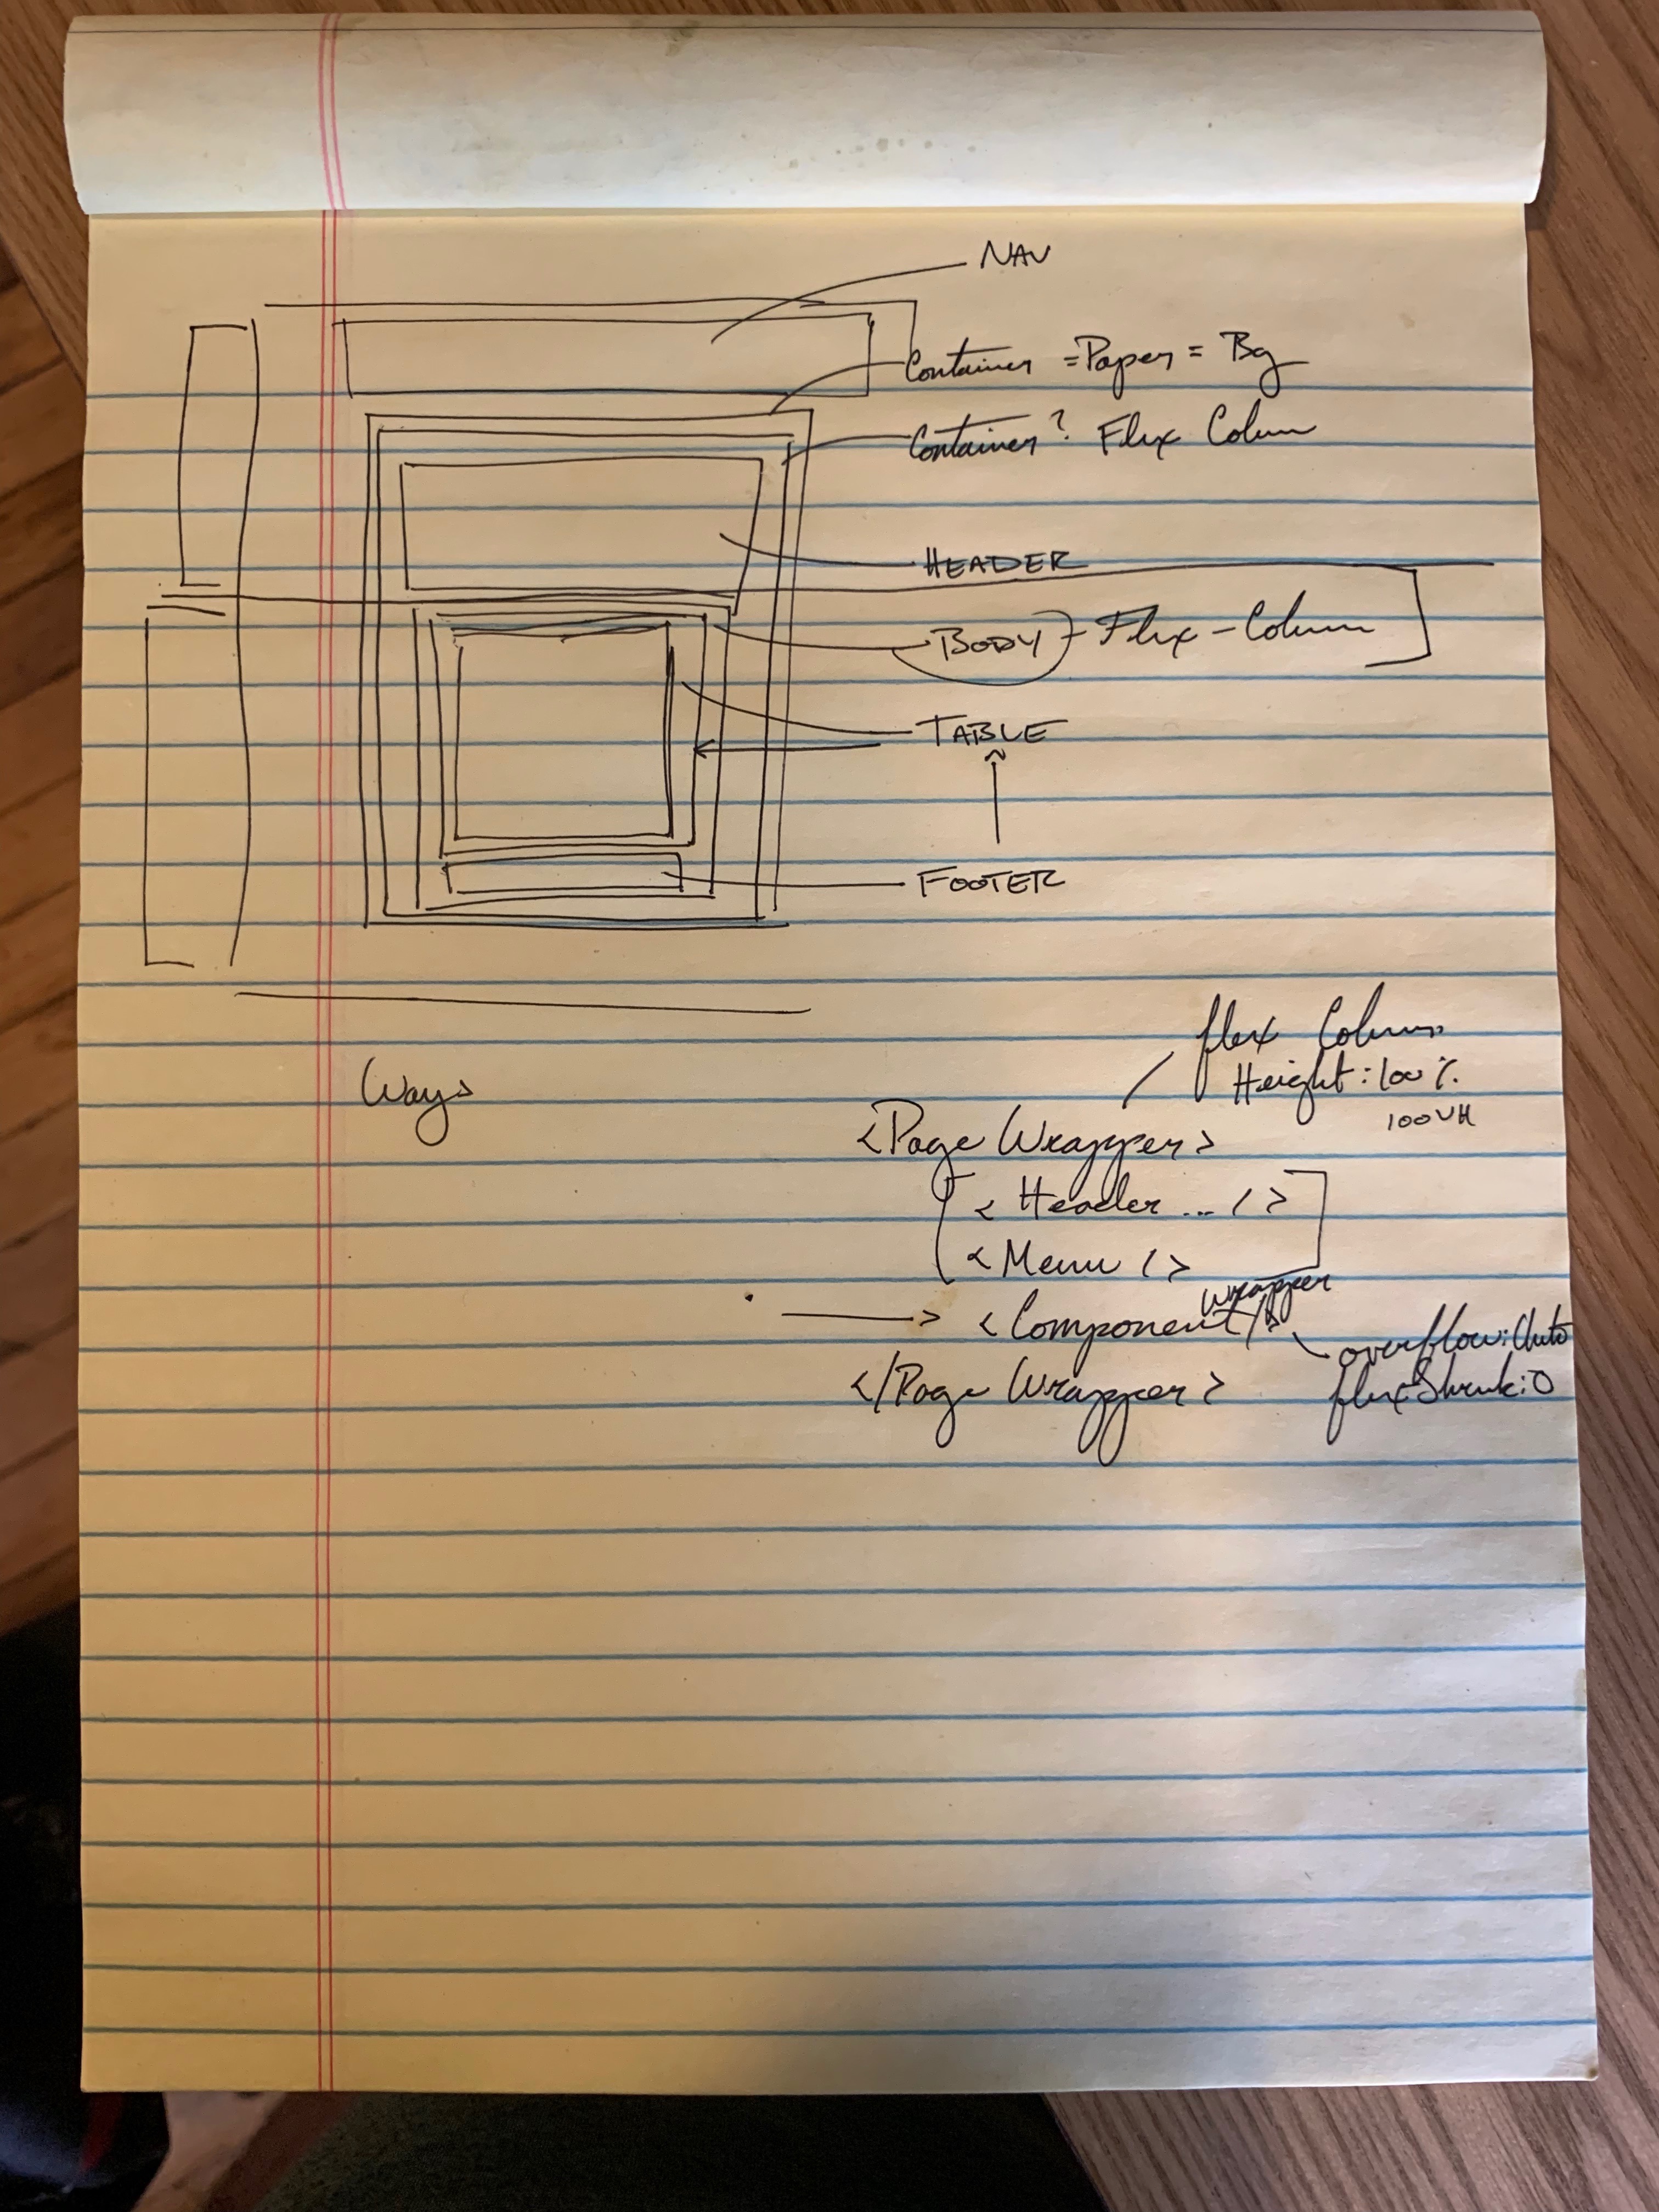 NAV
Container = Paper = Bg
Container? Flex Colum
HEADER
BODY - Flex - Column
TABLE
FOOTER
Ways
flex Column
Height: 100%
100VH
<Page Wrapper>
< Header ... / >
< Menu / >
wrapper
< Component / >
overflow: Auto
</Page Wrapper >
flexShrink: 0